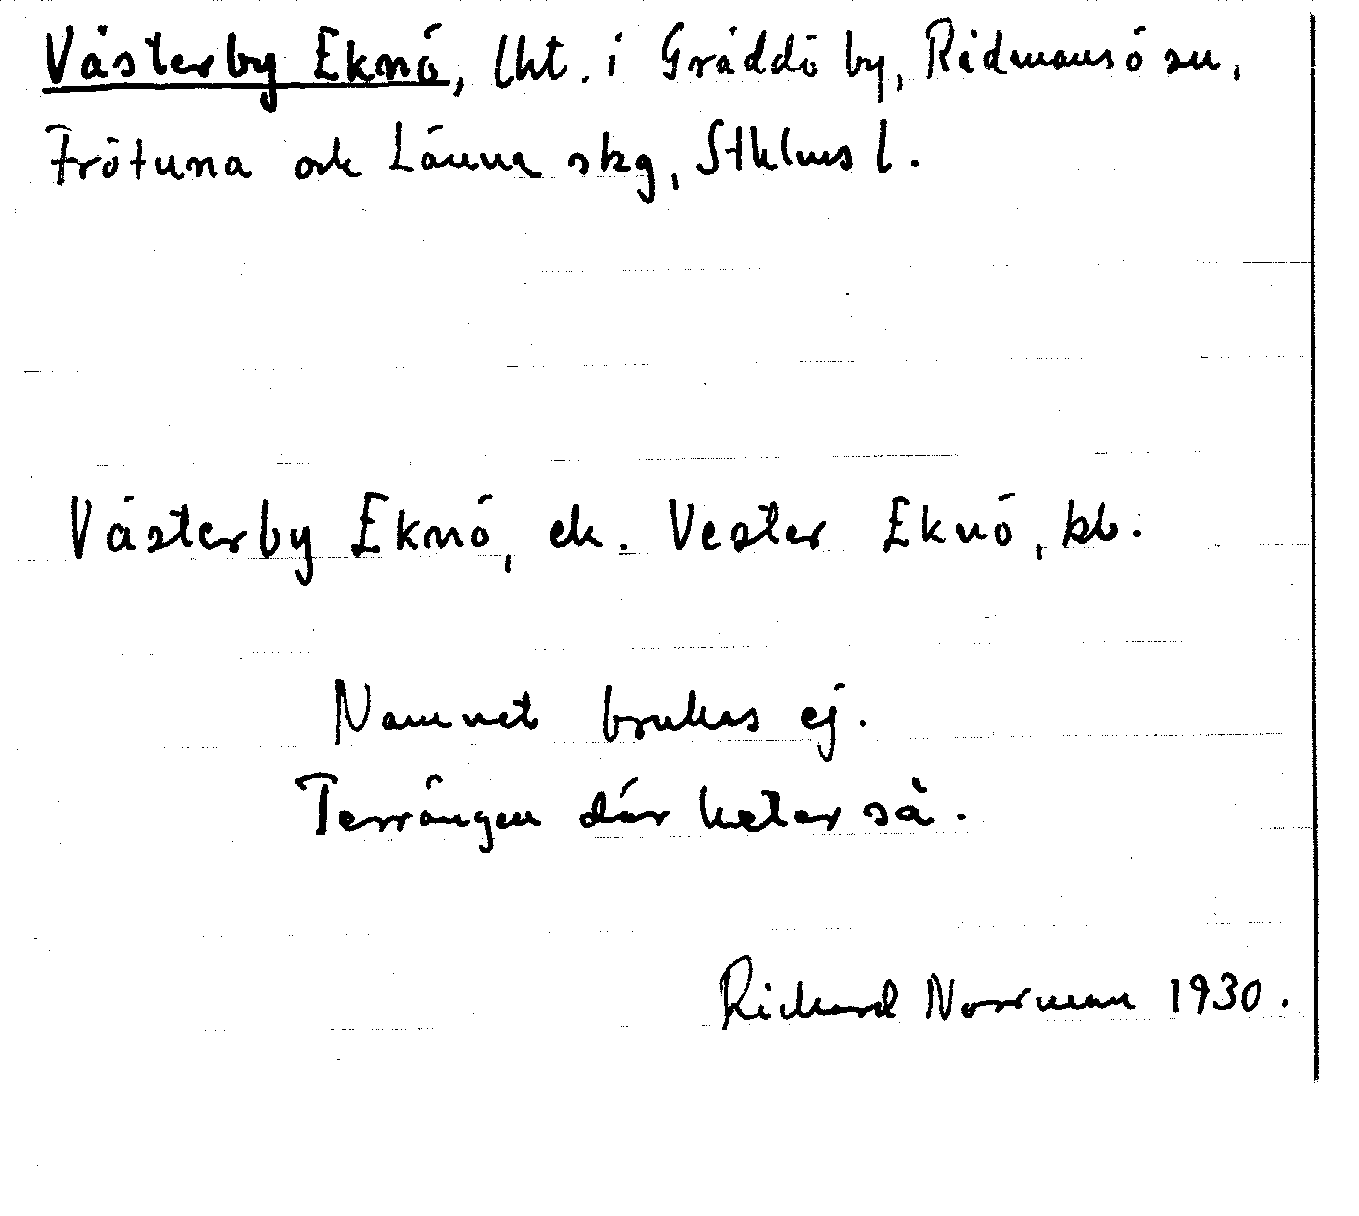 Västerby Eknö, lht. i Gräddö by, Rådmansö sn,
Frötuna och Länna skg, Sthlms l.
Västerby Eknö, ek. Vester Eknö, kb.
Namnet brukas ej.
Terrängen där heter så.
Richard Norrman 1930.